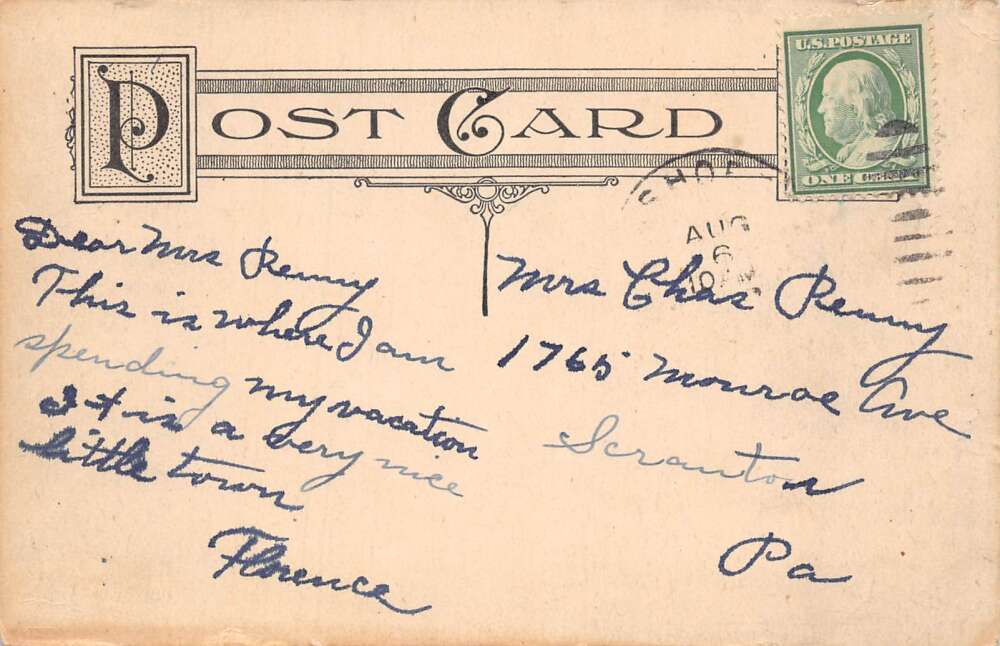 POST CARD
U.S. POSTAGE
ONE
AUG
6
10 AM
Dear Mrs Renny
This is where I am
spending my vacation
It is a very nice
little town
Florence
Mrs Chas Renny
1765 Monroe Ave
Scranton
Pa